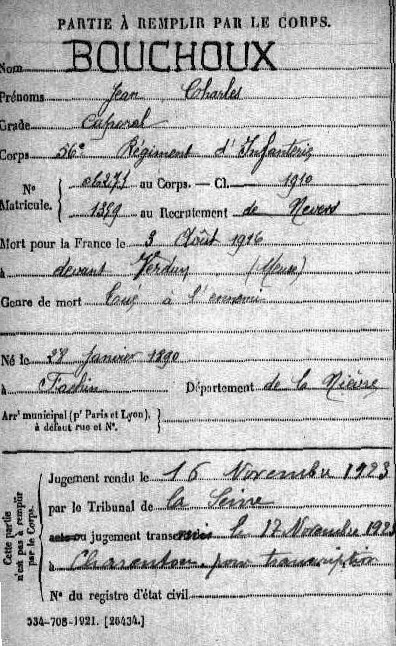 PARTIE À REMPLIR PAR LE CORPS.
Nom BOUCHOUX
Prénoms Jean Charles
Grade Caporal
Corps 56e Régiment d'Infanterie
N° Matricule. { au Corps. — Cl. 1910
1379 au Recrutement de Nevers
Mort pour la France le 3 Août 1916
à devant Verdun (Meuse)
Genre de mort Tué à l'ennemi
Né le 28 Janvier 1890
à Fachin Département de la Nièvre
Arrt municipal (pr Paris et Lyon), à défaut rue et N°. }
Cette partie n'est pas à remplir par le Corps. {
Jugement rendu le 16 Novembre 1923
par le Tribunal de la Seine
acte ou jugement transmis le 17 Novembre 1923
à Charenton pour transcription
N° du registre d'état civil
534-708-1921. [26434.]